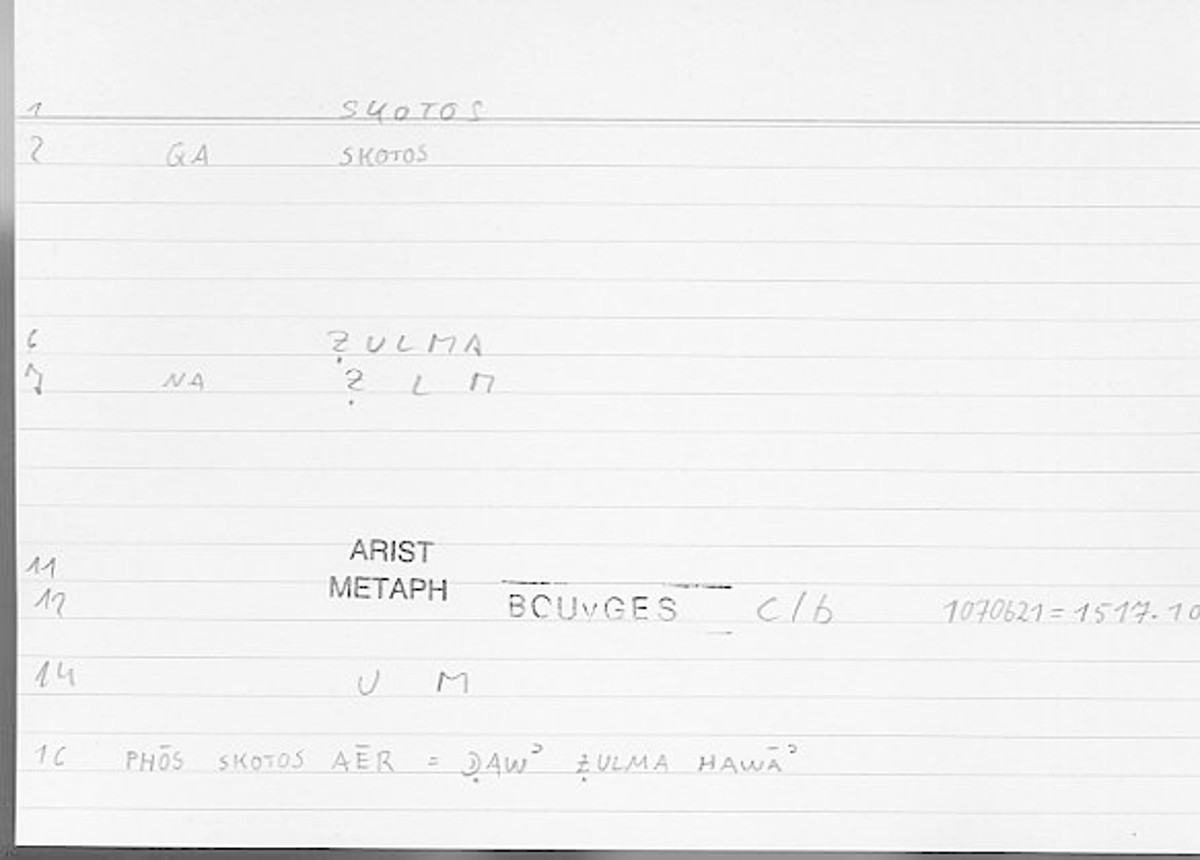 1 SKOTOS
2 GA SKOTOS
6 ẒULMA
7 NA Ẓ L M
ARIST
11
METAPH
12 BOUYGES C/b 1070b21=1517.10
14 U M
16 PHŌS SKOTOS AĒR = ḌAWʾ ẒULMA HAWĀʾ